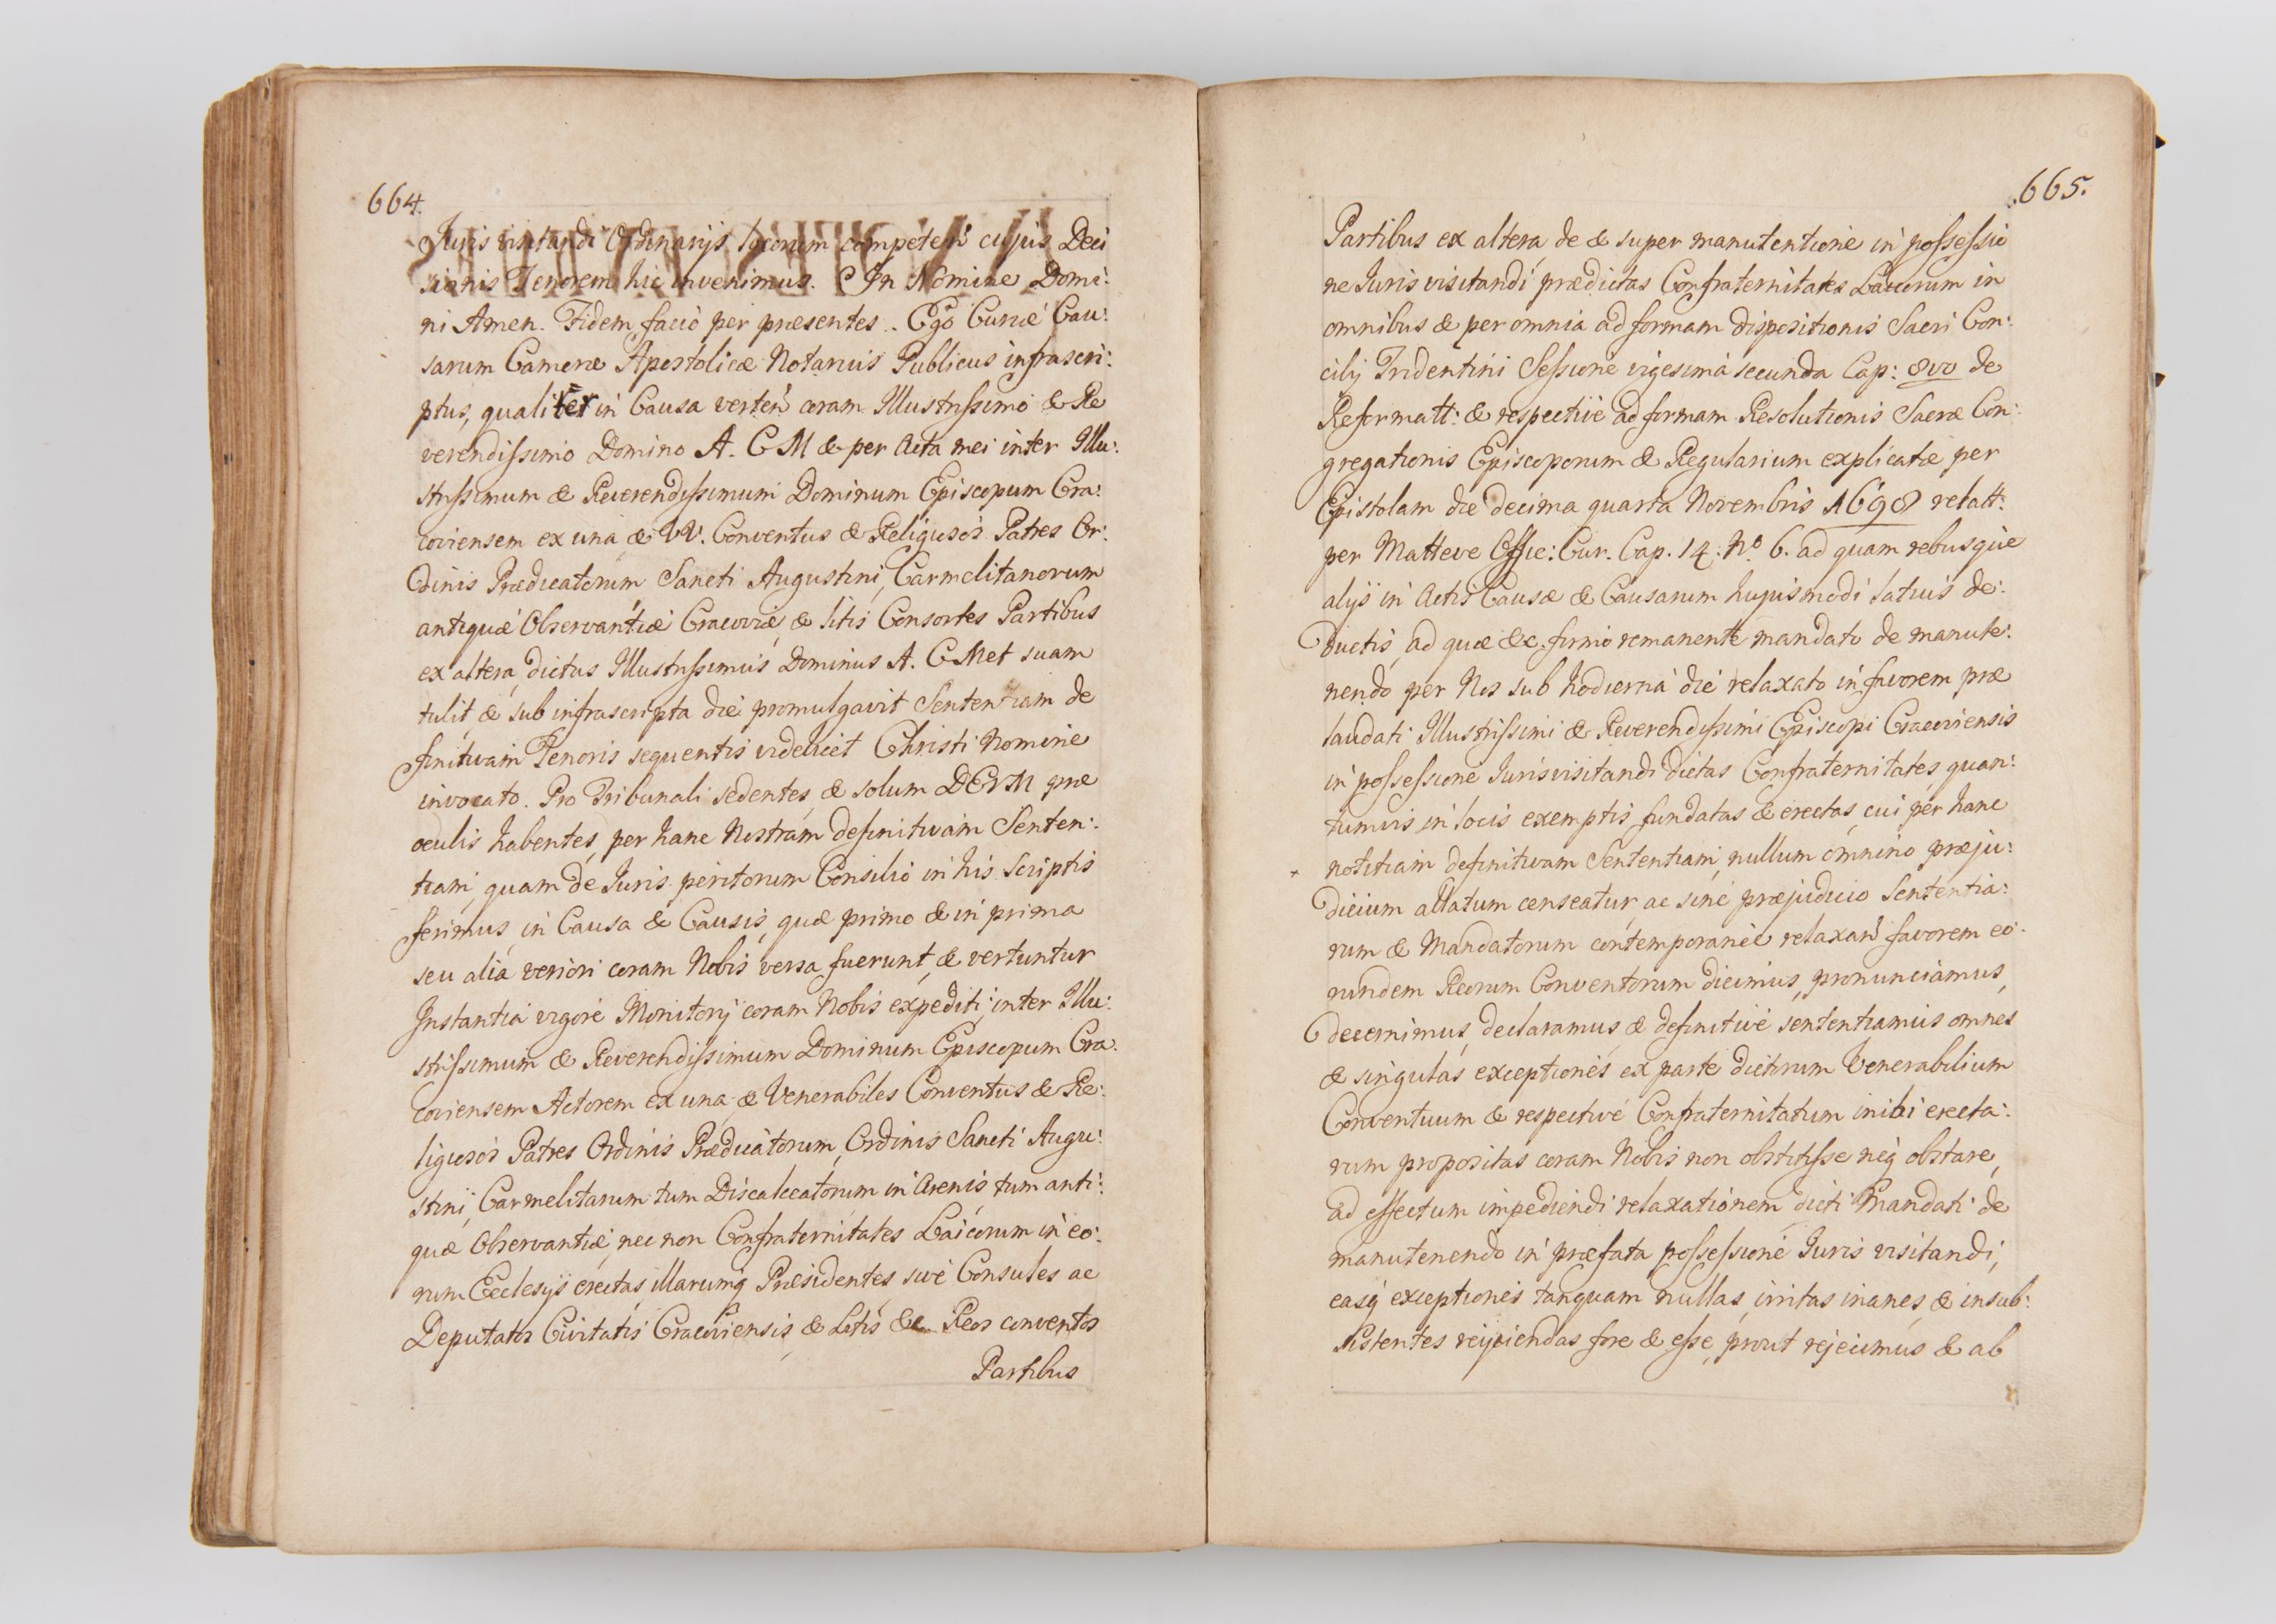 664.
Juris visitandi Ordinarijs locorum competen̄ cujus Deci
sionis Tenorem hic invenimus. In Nomine Domi:
ni Amen. Fidem facio per præsentes. Ego Curiæ Cau:
sarum Cameræ Apostolicæ Notarius Publicus infrascri:
ptus, qualiter in Causa verten̄ coram Illustrissimo & Re
verendissimo Domino A. C M & per Acta mei inter Illu:
strissimum & Reverendissimum Dominum Episcopum Cra:
coviensem ex una & VV. Conventus & Religiosos Patres Or:
dinis Prædicatorum, Sancti Augustini, Carmelitanorum
antiquæ Observantiæ Cracoviæ & litis Consortes Partibus
ex altera, dictus Illustrissimus Dominus A. C Met suam
tulit & sub infrascripta die promulgavit Sententiam de
finitivam Tenoris sequentis videlicet Christi Nomine
invocato. Pro Tribunali sedentes & solum DEVM præ
oculis habentes, per hanc Nostram definitivam Senten:
tiam, quam de Juris peritorum Consilio in his Scriptis
ferimus, in Causa & Causis, quæ primo & in prima
seu alia veriori coram Nobis versa fuerunt, & vertuntur
Instantia vigore Monitorij coram Nobis expediti, inter Illu:
strissimum & Reverendissimum Dominum Episcopum Cra:
coviensem Actorem ex una & Venerabiles Conventus & Re:
ligiosos Patres Ordinis Prædicatorum, Ordinis Sancti Augu:
stini, Carmelitarum tum Discalceatorum in Arenis tum anti:
quæ Observantiæ, nec non Confraternitates Laicorum in eo:
rum Ecclesijs erectas, illarumq Præsidentes, sive Consules ac
Deputatos Civitatis Cracoviensis, & Litis &c Reos conventos
Partibus
665.
Partibus ex altera, de & super manutentione in possessio
ne Juris visitandi prædictas Confraternitates Laicorum in
omnibus & per omnia ad formam dispositionis Sacri Con:
cilij Tridentini Sessione vigesima secunda Cap: 8vo de
Reformatt: & respective ad formam Resolutionis Sacræ Con:
gregationis Episcoporum & Regularium explicatæ per
Epistolam die decima quarta Novembris 1698 relatt:
per Matteve Offic: Cur. Cap. 14. No 6. ad quam rebusque
alijs in Actis Causæ & Causarum hujusmodi latius de:
ductis, ad quæ &c. firmo remanente mandato de manute:
nendo, per Nos sub hodierna die relaxato in favorem præ
laudati Illustrissimi & Reverendissimi Episcopi Cracoviensis
in possessione Juris visitandi dictas Confraternitates, quan:
tumvis in locis exemptis fundatas & erectas, cui per hanc
notitiam definitivam Sententiam, nullum omnino præju:
dicium allatum censeatur, ac sine præjudicio Sententia:
rum & Mandatorum contemporaneé relaxan̄ favorem eo:
rundem Reorum Conventorum dicimus, pronunciamus,
decernimus, declaramus & definitive sententiamus omnes
& singulas exceptiones ex parte dictorum Venerabilium
Conventuum & respective Confraternitatum inibi erecta:
rum propositas coram Nobis non obstitisse neq obstare,
ad effectum impediendi relaxationem dicti Mandati de
manutenendo in præfata possessione Juris visitandi,
easq exceptiones tanquam nullas, irritas inanes, & insub:
sistentes reijciendas fore & esse, prout rejecimus & ab